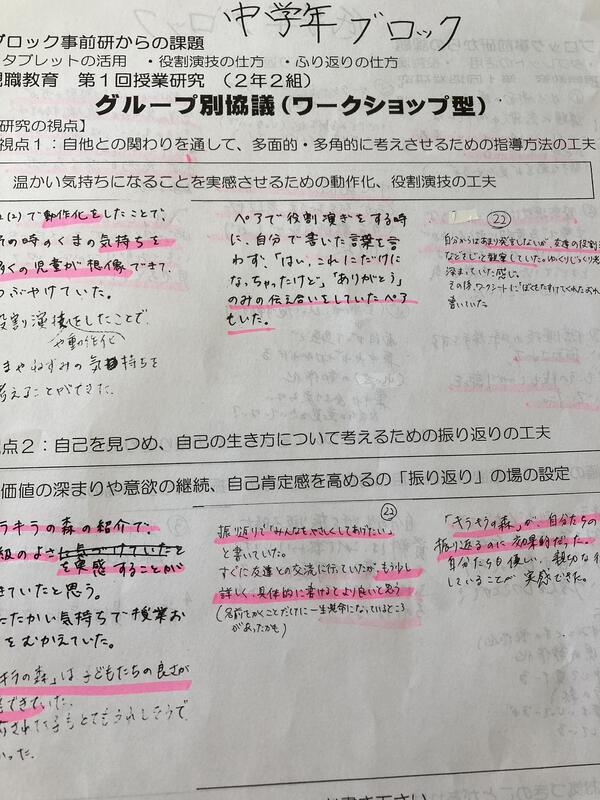 中学年ブロック
ブロック事前研からの課題
タブレットの活用　・役割演技の仕方　・ふり返りの仕方
現職教育　第1回授業研究　(2年2組)
グループ別協議(ワークショップ型)
研究の視点】
視点1：自他との関わりを通して、多面的・多角的に考えさせるための指導方法の工夫
温かい気持ちになることを実感させるための動作化、役割演技の工夫
(2)で動作化をしたことで、
その時のくまの気持ちを
多くの児童が想像できて、
つぶやけていた。
役割演技をしたことで
や動作化
まやねずみの気持ちを
考えることができた。
ペアで役割演ぎをする時
に、自分で書いた言葉を言
わず、「はい、これにだけに
なっちゃったけど」「ありがとう」
のみの伝え合いをしていたペア
もいた。
㉒
自分からはあまり発言しないが、友達の役割
などをじっと観察していた。ゆっくりじっくり
深まっていた感じ。
その後、ワークシートに「ぼくもたすけてくれた
書いていた。
点2：自己を見つめ、自己の生き方について考えるための振り返りの工夫
価値の深まりや意欲の継続、自己肯定感を高めるの「振り返り」の場の設定
ラキラの森の紹介で、
級のよさ
を実感することが
きていたと思う。
たたかい気持ちで授業お
をむかえていた。
キラの森」は子どもたちの良さが
できていた。
された子もとてもうれしそうで
かった。
㉓
振り返りで「みんなをやさしくしてあげたい」
と書いていた。
すぐに友達との交流に伝っていたが、もう少し
詳しく、具体的に書けるとより良いと思う
(名前をかくことだけに一生懸命になっているところ
があったかも)
「キラキラの森」が、自分たちの
振り返るのに効果的だった。
自分たちも優しい、親切な行
していることが実感できた。